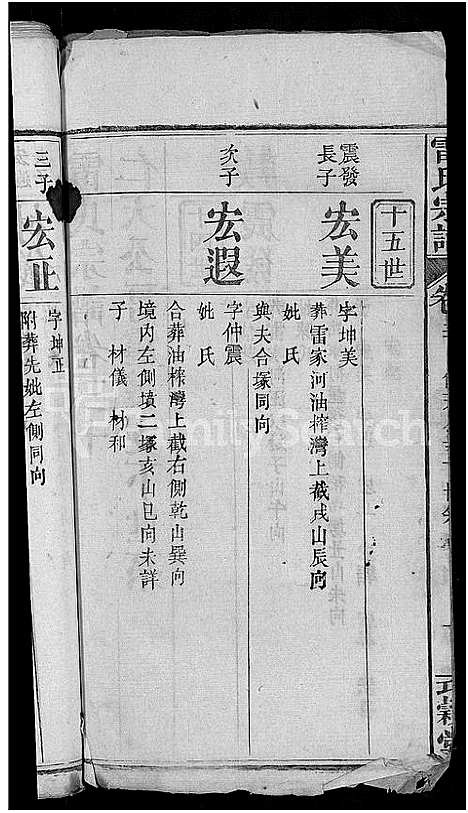 雷氏宗譜
十五世
震發長子
宏美
字坤美
葬雷家河油榨灣上截戌山辰向
妣氏
與夫合塚同向
次子
宏遐
字仲震
妣氏
合葬油榨灣上截右側乾山巽向
境內左側墳二塚亥山巳向未詳
子 材儀 材和
三子
宏正
字坤正
附葬先妣左側同向
FamilySearch